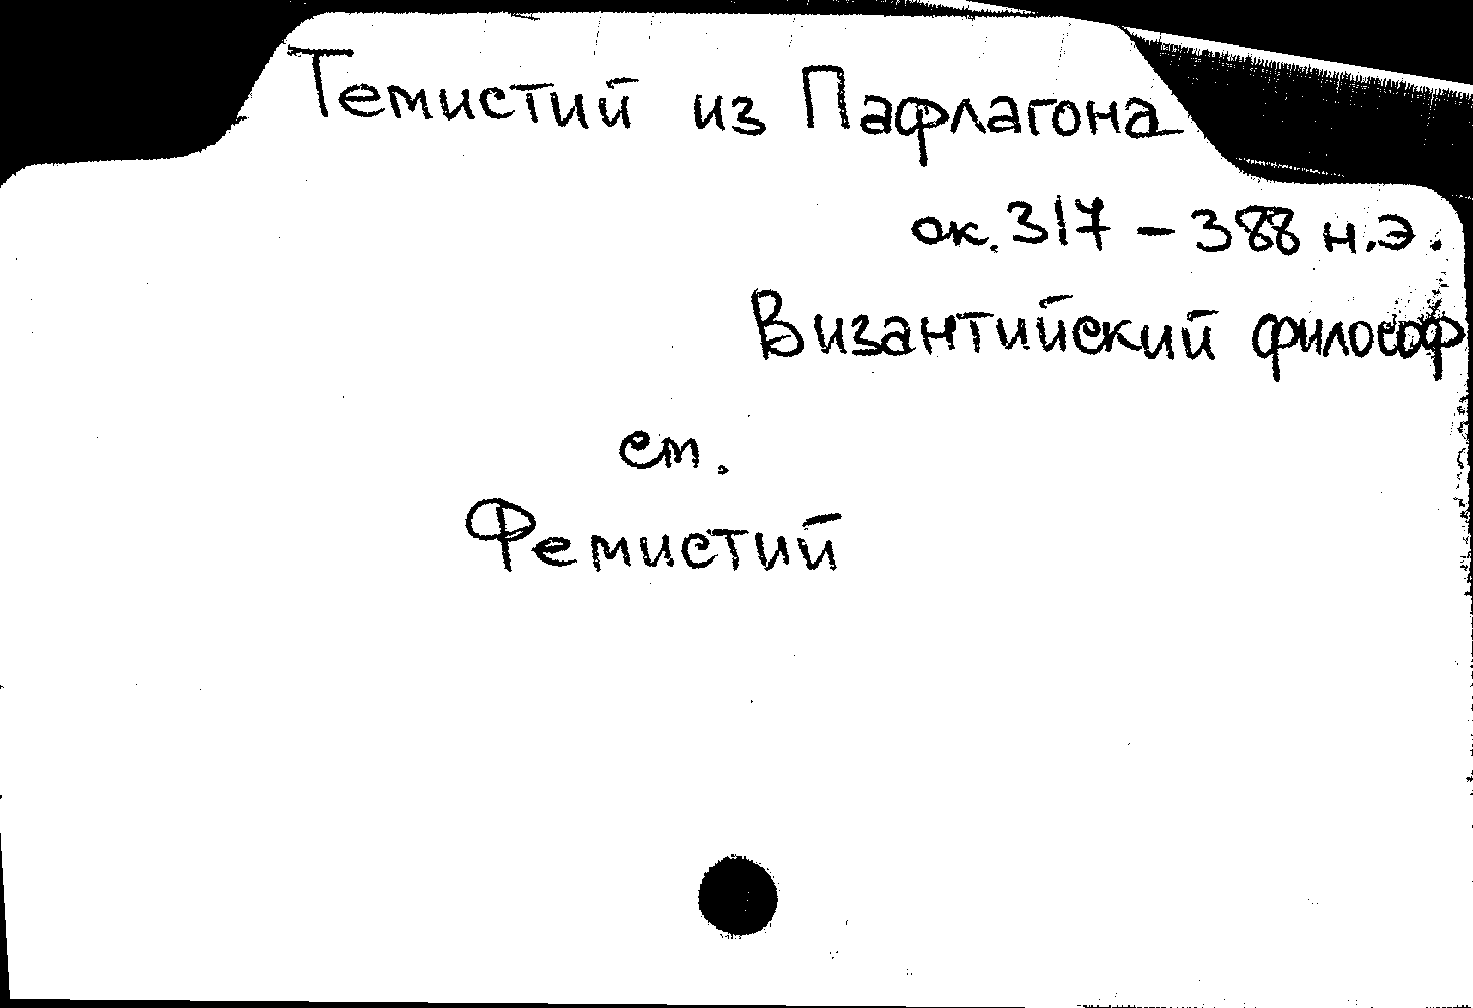 Темистий из Пафлагона
ок. 317 – 388 н.э.
Византийский философ
см.
Фемистий